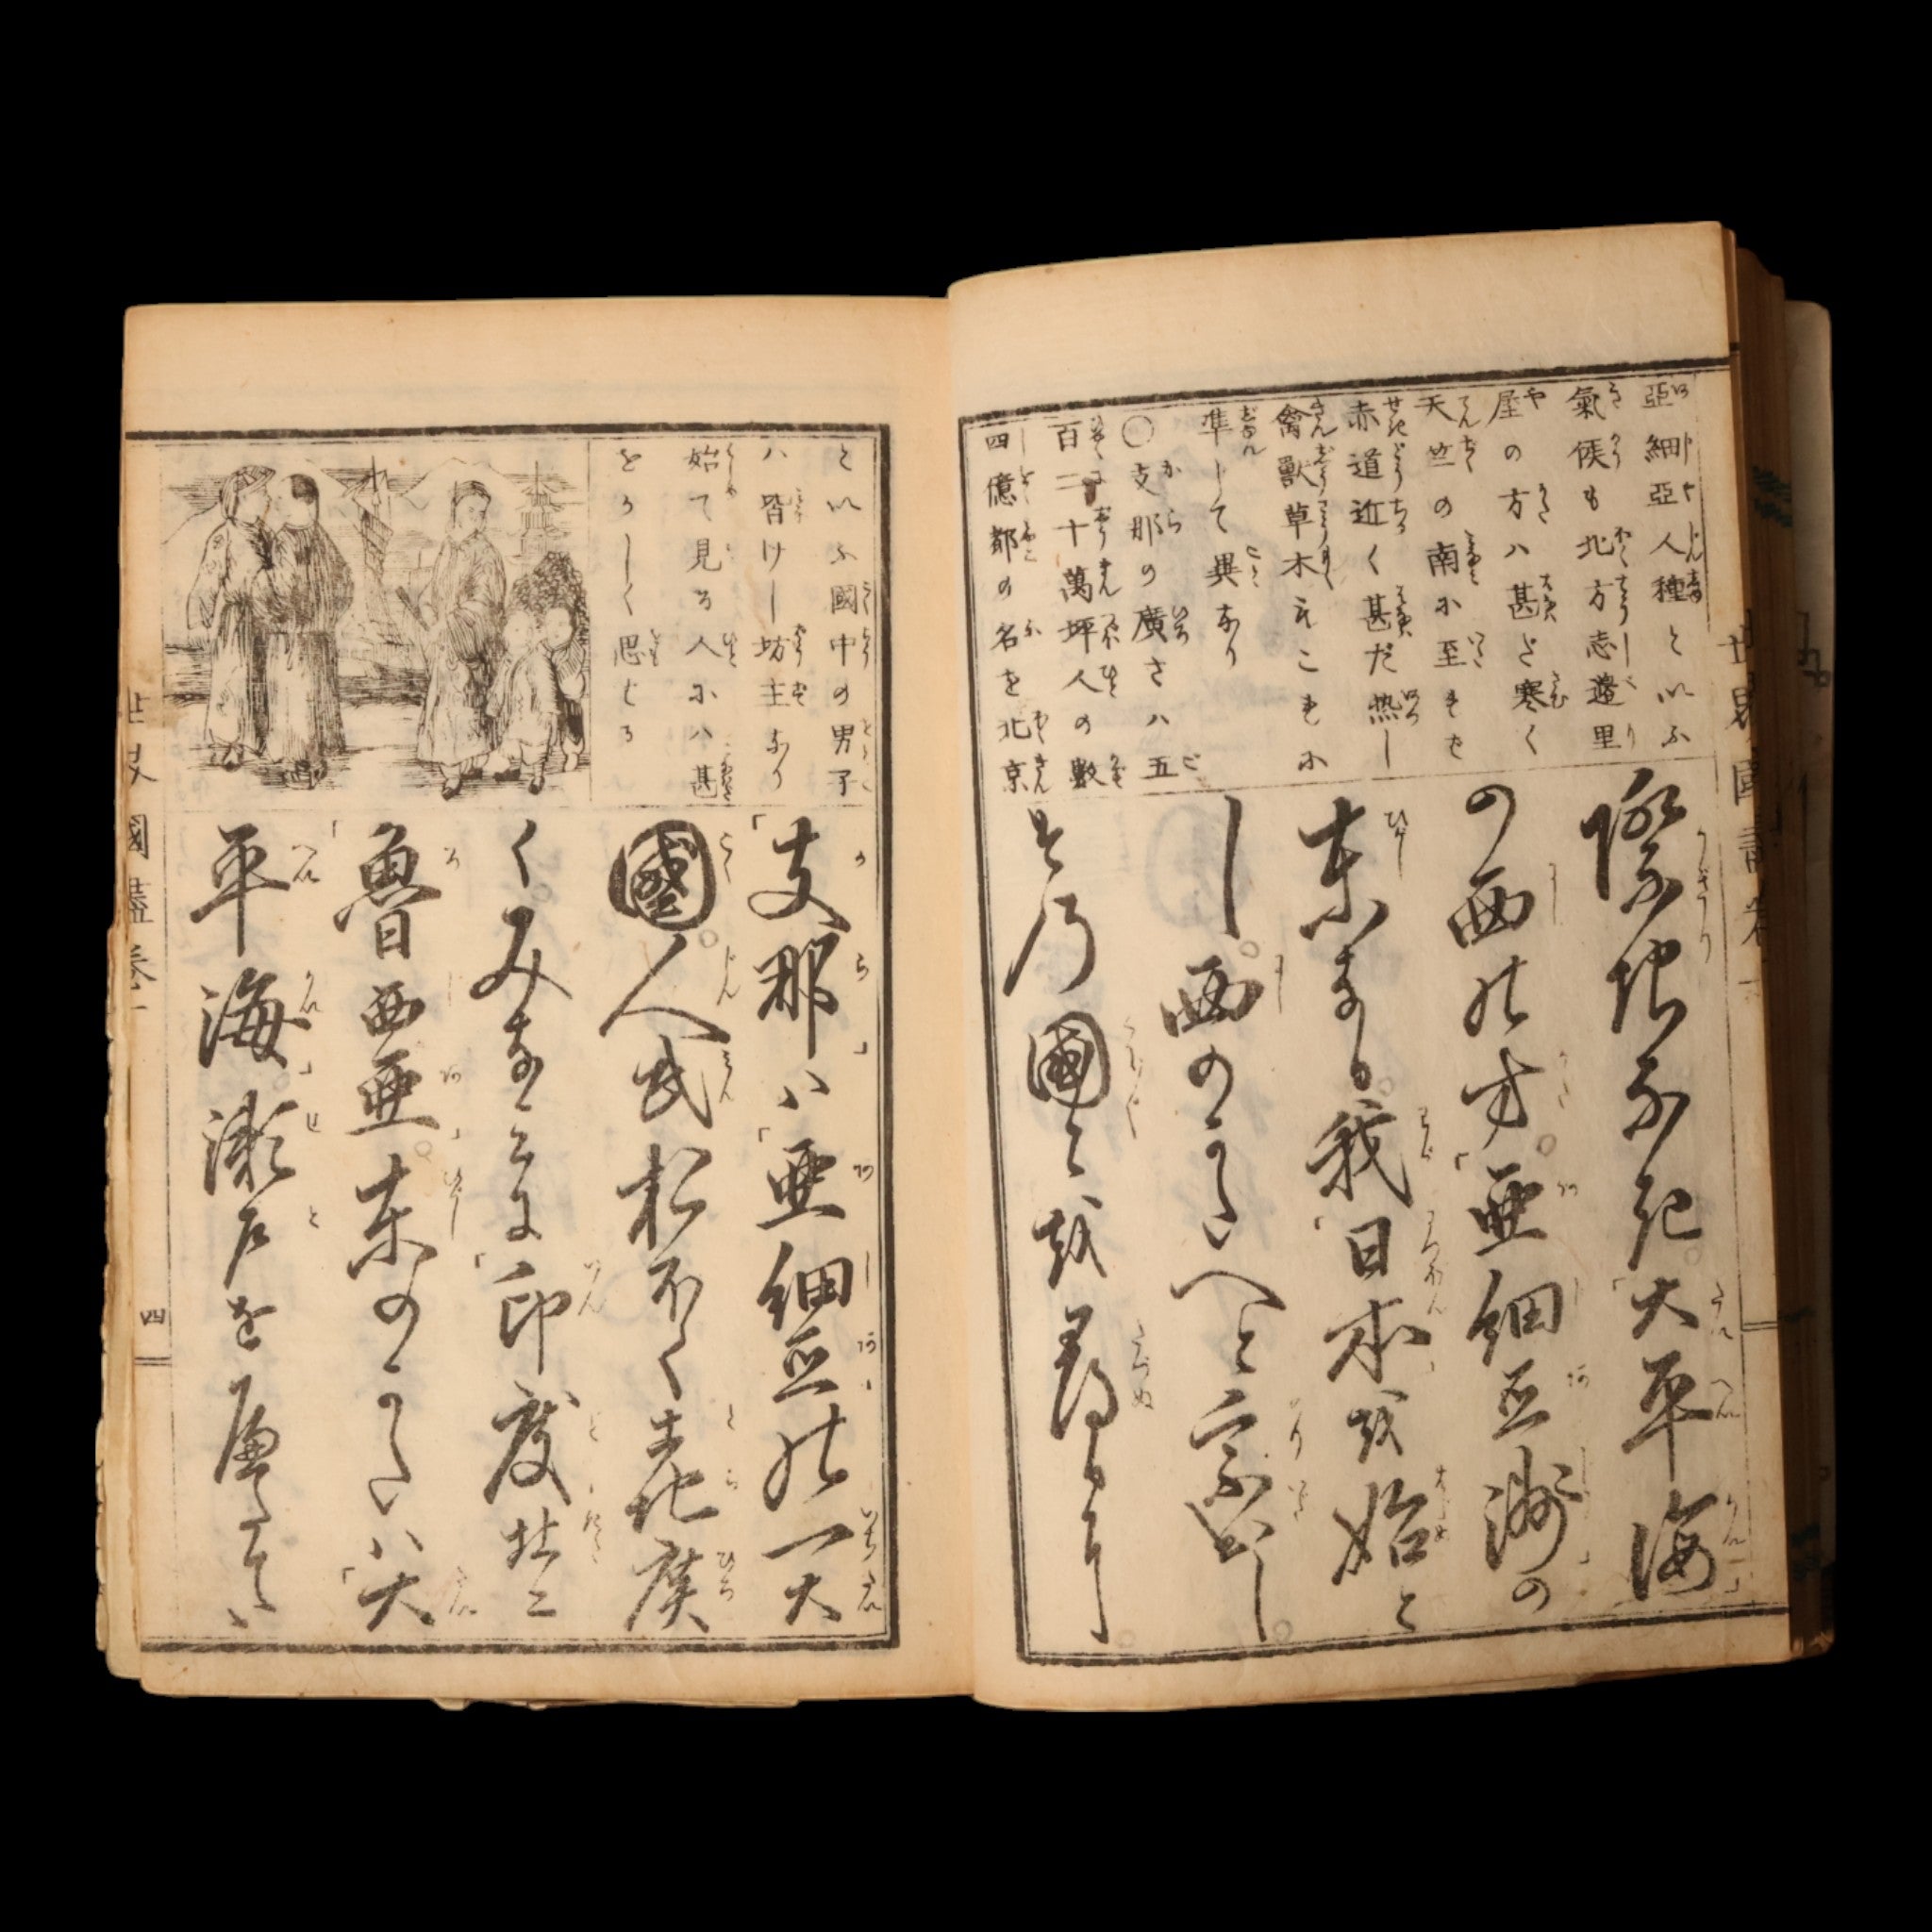 亞細亞人種といふ
氣候も北方志邊里
屋の方ハ甚だ寒く
天竺の南に至れば
赤道近く甚だ熱し
禽獸草木もこれに
準じて異なり
〇支那の廣さハ五
百二十萬坪人の數
四億都の名を北京
際限なき「大平海」
の西の方。「亞細亞洲」の
東なる我「日本」を始と
し。西のかたへと乗出し。
その國々を尋るに。
といふ國中の男子
ハ皆けし坊主なり
始て見る人にハ甚
をかしく思はる
「支那」ハ「亞細亞」の一大
國。人民おほく土地廣
くみなみに「印度」北に
「魯西亞」。東のかたハ「大
平海」瀬戸を隔てゝ
世界國盡卷一
四